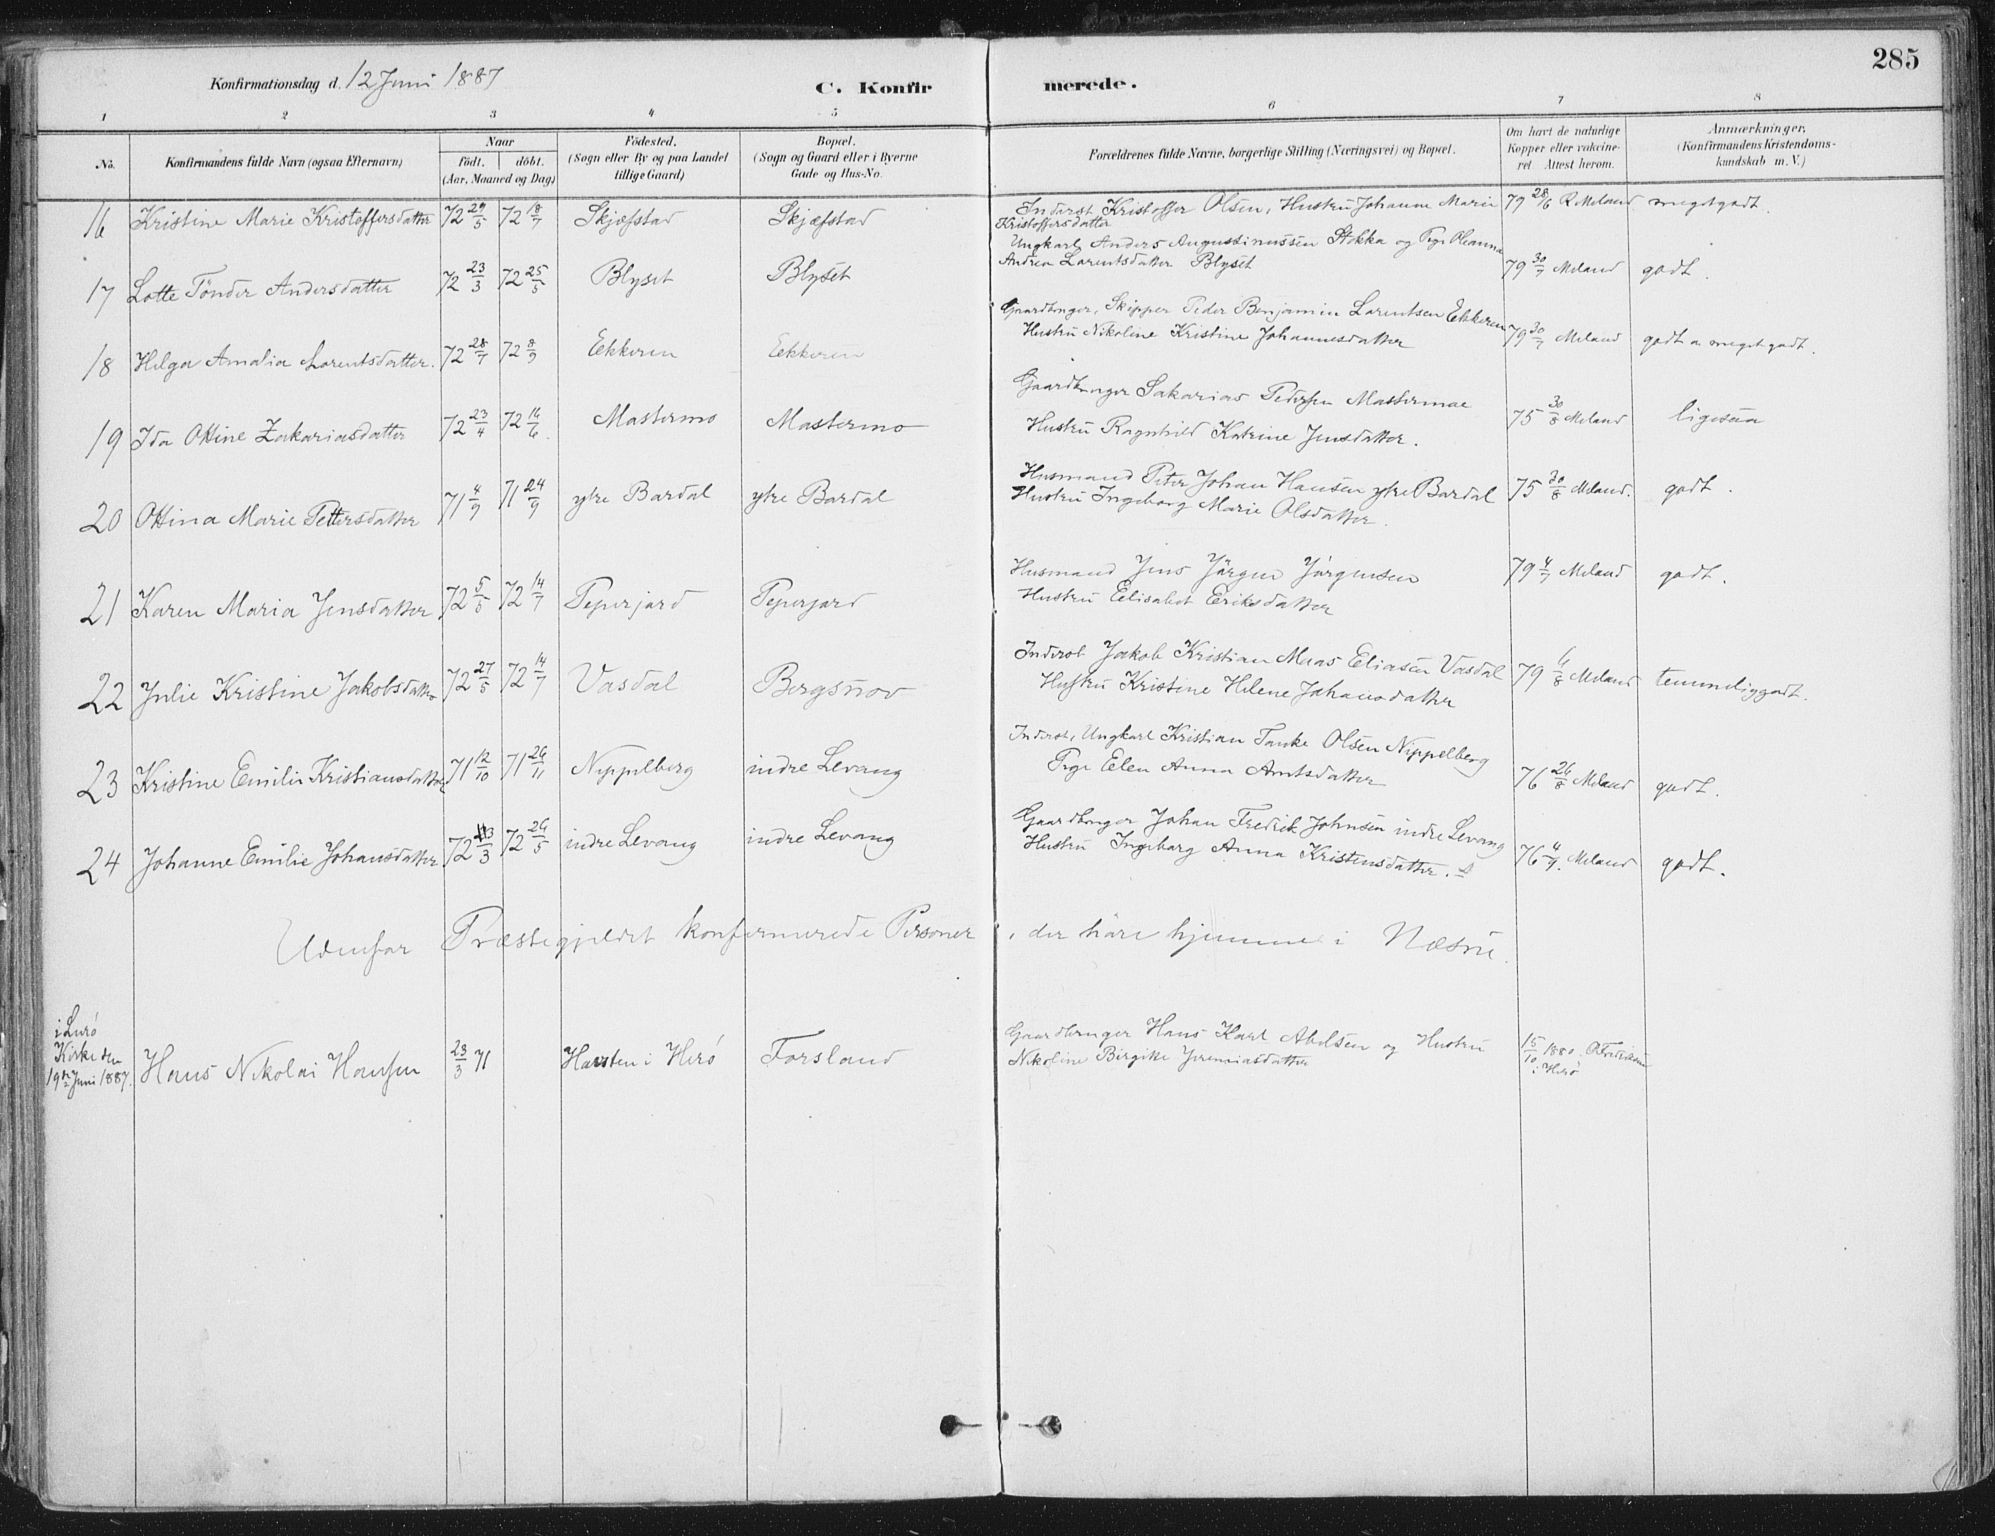 285
Konfirmationsdag d. 12 Juni 1887
C. Konfirmerede.
1 2 3 4 5 6 7 8
No. Konfirmandens fulde Navn (ogsaa Efternavn) Naar født. døbt. (Aar, Maaned og Dag) Födested. (Sogn eller By og paa Landet tillige Gaard) Bopæl. (Sogn og Gaard eller i Byerne Gade og Hus-No. Forældrenes fulde Navne, borgerlige Stilling (Næringsvei) og Bopæl. Om havt de naturlige Kopper eller vaccineret Attest herom. Anmærkninger. (Konfirmandens Kristendomskundskab m. V.)
16 Kristine Marie Kristoffersdatter 72 29/5 72 18/7 Skjæfstad Skjæfstad Inderst Kristoffer Olsen, Hustru Johanne Marie Kristoffersdatter 79 28/6 R Meland meget godt
17 Lotte Tönder Andersdatter 72 23/3 72 25/5 Blyset Blyset Ungkarl Anders Augustinussen Stokka og Pige Oleanna Andrea Lorentsdatter Blyset 79 30/7 Meland godt.
18 Helga Amalia Lorentsdatter. 72 28/7 72 8/9 Eekkeren Eekkeren Gaardbruger, Skipper Peder Benjamin Lorentsen Ekkeren Hustru Nikoline Kristine Johannesdatter 79 30/7 Meland godt a meget godt.
19 Ida Ottine Zakariasdatter 72 23/4 72 16/6. Mastermo Mastermo Gaardbruger Sakarias Pedersen Mastermoe Hustru Ragnhild Katrine Jensdatter. 75 30/8 Meland ligesaa
20 Ottina Marie Pettersdatter 71 4/9 71 24/9 ytre Bardal ytre Bardal Husmand Peter Johan Hansen ytre Bardal Hustru Ingeborg Marie Olsdatter. 75 30/8 Meland. godt.
21 Karen Maria Jensdatter 72 5/5 72 14/7 Peperjord Peperjord Husmand Jens Jörgen Jörgensen Hustru Elisabet Eriksdatter 79 4/7 Meland godt.
22 Julie Kristine Jakobsdatter 72 27/5 72 14/7 Vasdal Bergsnov Inderst Jakob Kristian Maas Eliasen Vasdal Hustru Kristine Helene Johansdatter 79 6/8 Meland temmeliggodt.
23 Kristine Emilie Kristiansdatter 71 12/10 71 26/11 Nippelberg indre Levang Inderst, Ungkarl Kristian Tanke Olsen Nippelberg Pige Elen Anna Arntsdatter 76 26/8 Meland godt.
24 Johanne Emilie Johansdatter 72 13/3 72 26/5 indre Levang indre Levang Gaardbruger Johan Fredrik Johnsen indre Levang Hustru Ingeborg Anna Kristensdatter. 76 4/9. Meland godt.
Udenfor Præstegjeldet konfirmerede Personer, der höre hjemme i Næsne.
i Lurö Kirke den 19de Juni 1887. Hans Nikolai Hansen 28/3 71 Haesten i Herö Forsland Gaardbruger Hans Karl Abelsen og Hustru Nikoline Birgitte Jeremiasdatter 15/10 1880. i Herö